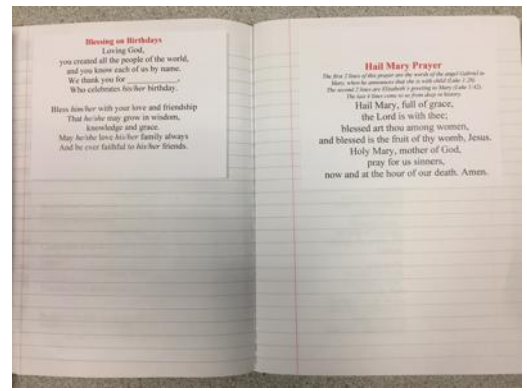 Blessing on Birthdays
Loving God,
you created all the people of the world,
and you know each of us by name.
We thank you for ____________,
Who celebrates his/her birthday.
Bless him/her with your love and friendship
That he/she may grow in wisdom,
knowledge and grace.
May he/she love his/her family always
And be ever faithful to his/her friends.
Hail Mary Prayer
The first 2 lines of this prayer are the words of the angel Gabriel to
Mary, when he announces that she is with child (Luke 1:28).
The second 2 lines are Elizabeth's greeting to Mary (Luke 1:42).
The last 4 lines come to us from deep in history.
Hail Mary, full of grace,
the Lord is with thee;
blessed art thou among women,
and blessed is the fruit of thy womb, Jesus.
Holy Mary, mother of God,
pray for us sinners,
now and at the hour of our death. Amen.